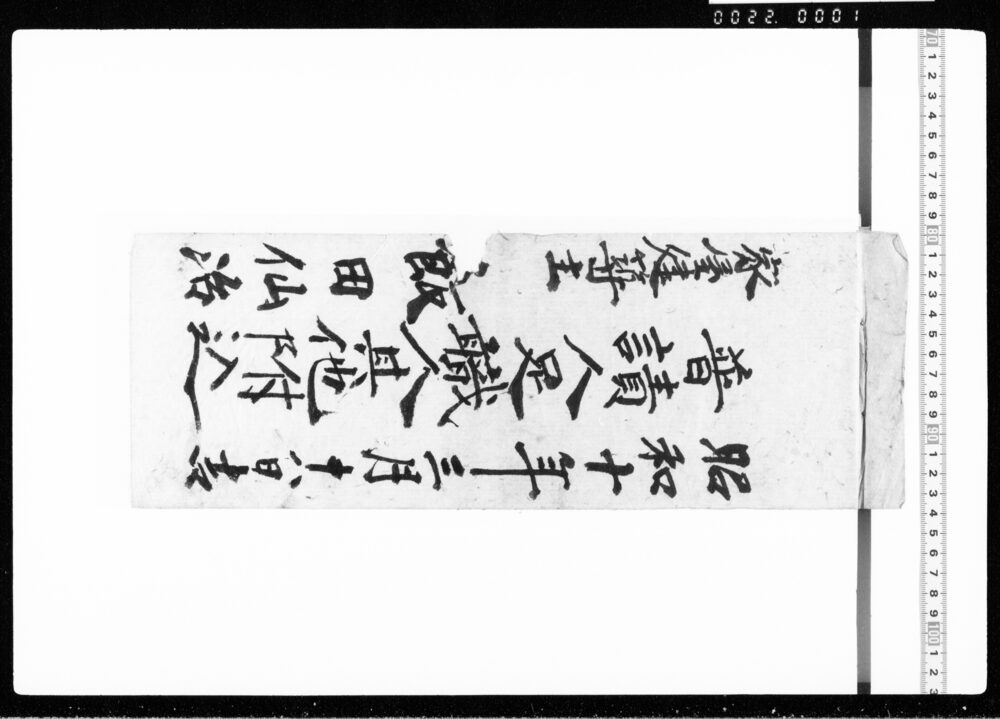 昭和十年三月十八日
普請人足職人其他附込
家屋建築主　飯田仙治
0022.0001
70 1 2 3 4 5 6 7 8 9 80 1 2 3 4 5 6 7 8 9 90 1 2 3 4 5 6 7 8 9 100 1 2 3